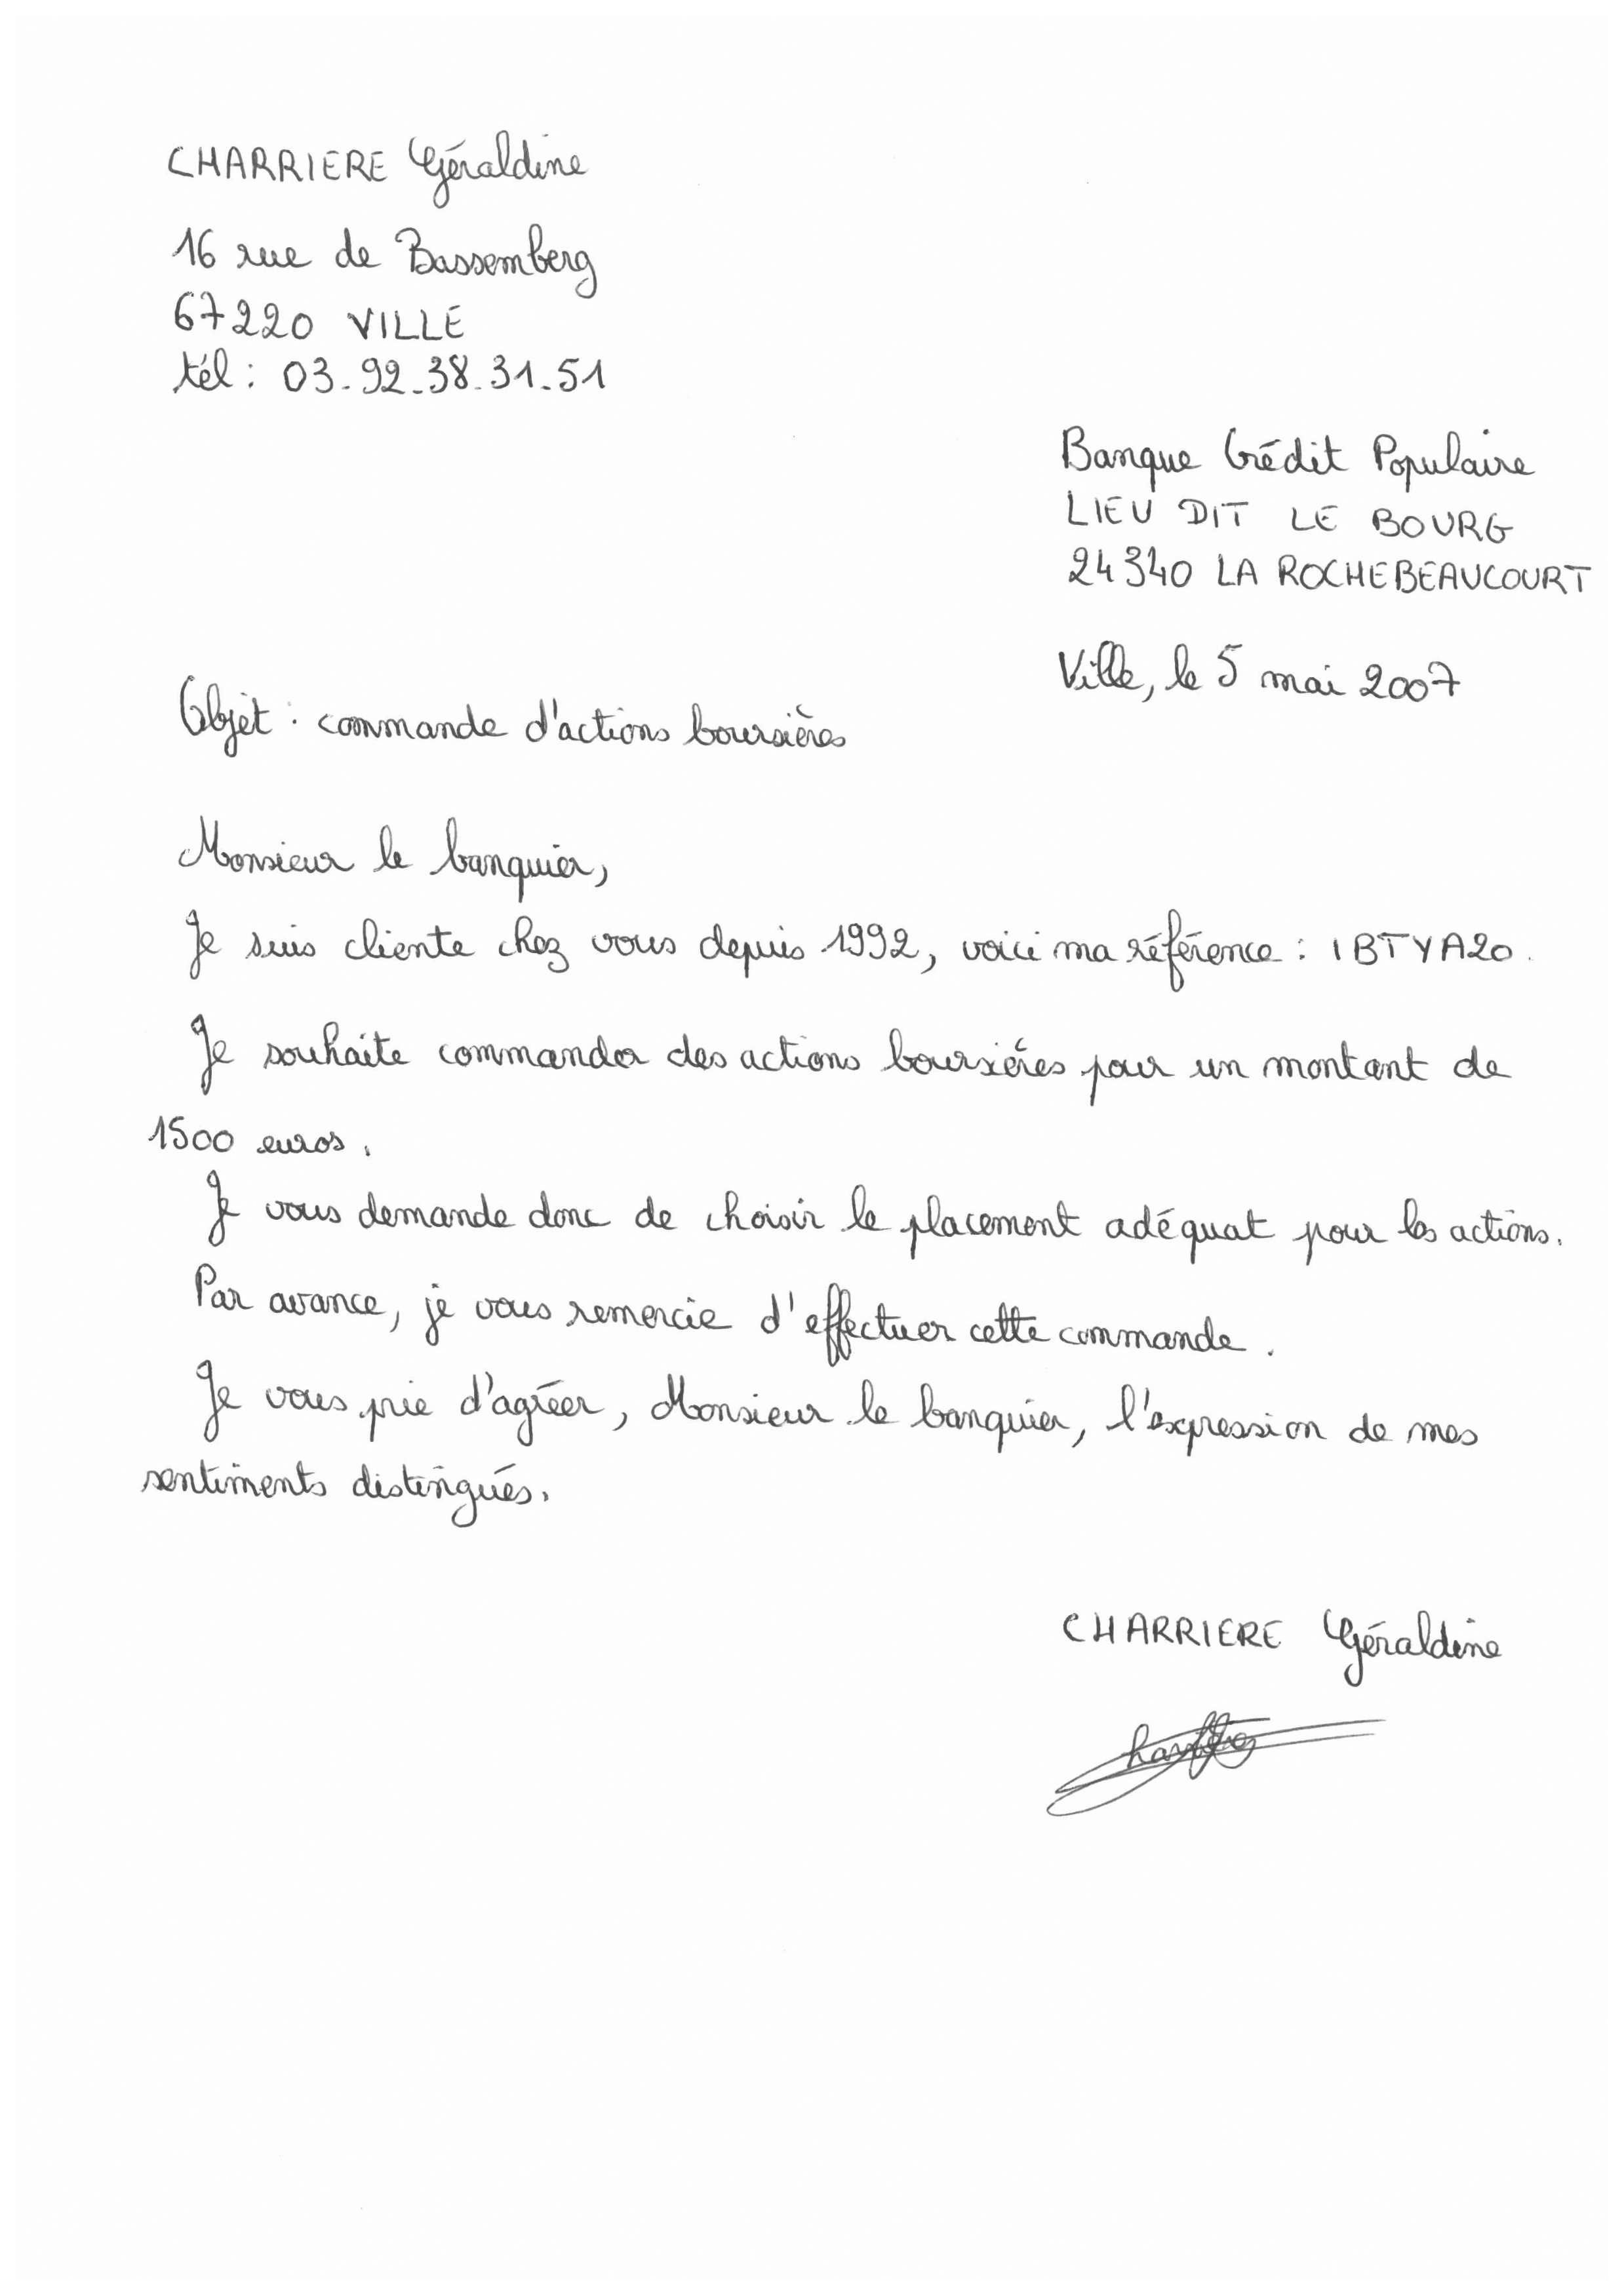 CHARRIERE Géraldine
16 rue de Bassemberg
67220 VILLE
tél : 03.92.38.31.51
Banque Crédit Populaire
LIEU DIT LE BOURG
24340 LA ROCHEBEAUCOURT
Ville, le 5 mai 2007
Objet : commande d'actions boursières
Monsieur le banquier,
Je suis cliente chez vous depuis 1992, voici ma référence : IBTYA20.
Je souhaite commander des actions boursières pour un montant de
1500 euros.
Je vous demande donc de choisir le placement adéquat pour les actions.
Par avance, je vous remercie d'effectuer cette commande.
Je vous prie d'agréer, Monsieur le banquier, l'expression de mes
sentiments distingués.
CHARRIERE Géraldine